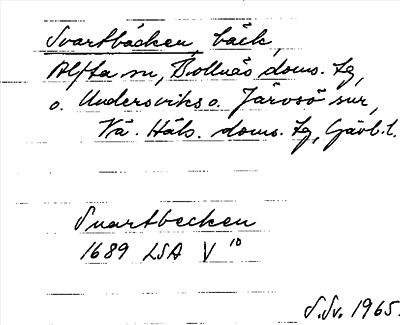 Svartbäcken, bäck,
Alfta sn, Bollnäs doms. tg,
o. Undersviks o. Järvsö snr,
Vä. Häls. doms. tg, Gävl. l.
Svartbecken
1689 LSA V 10
S.Sv. 1965.